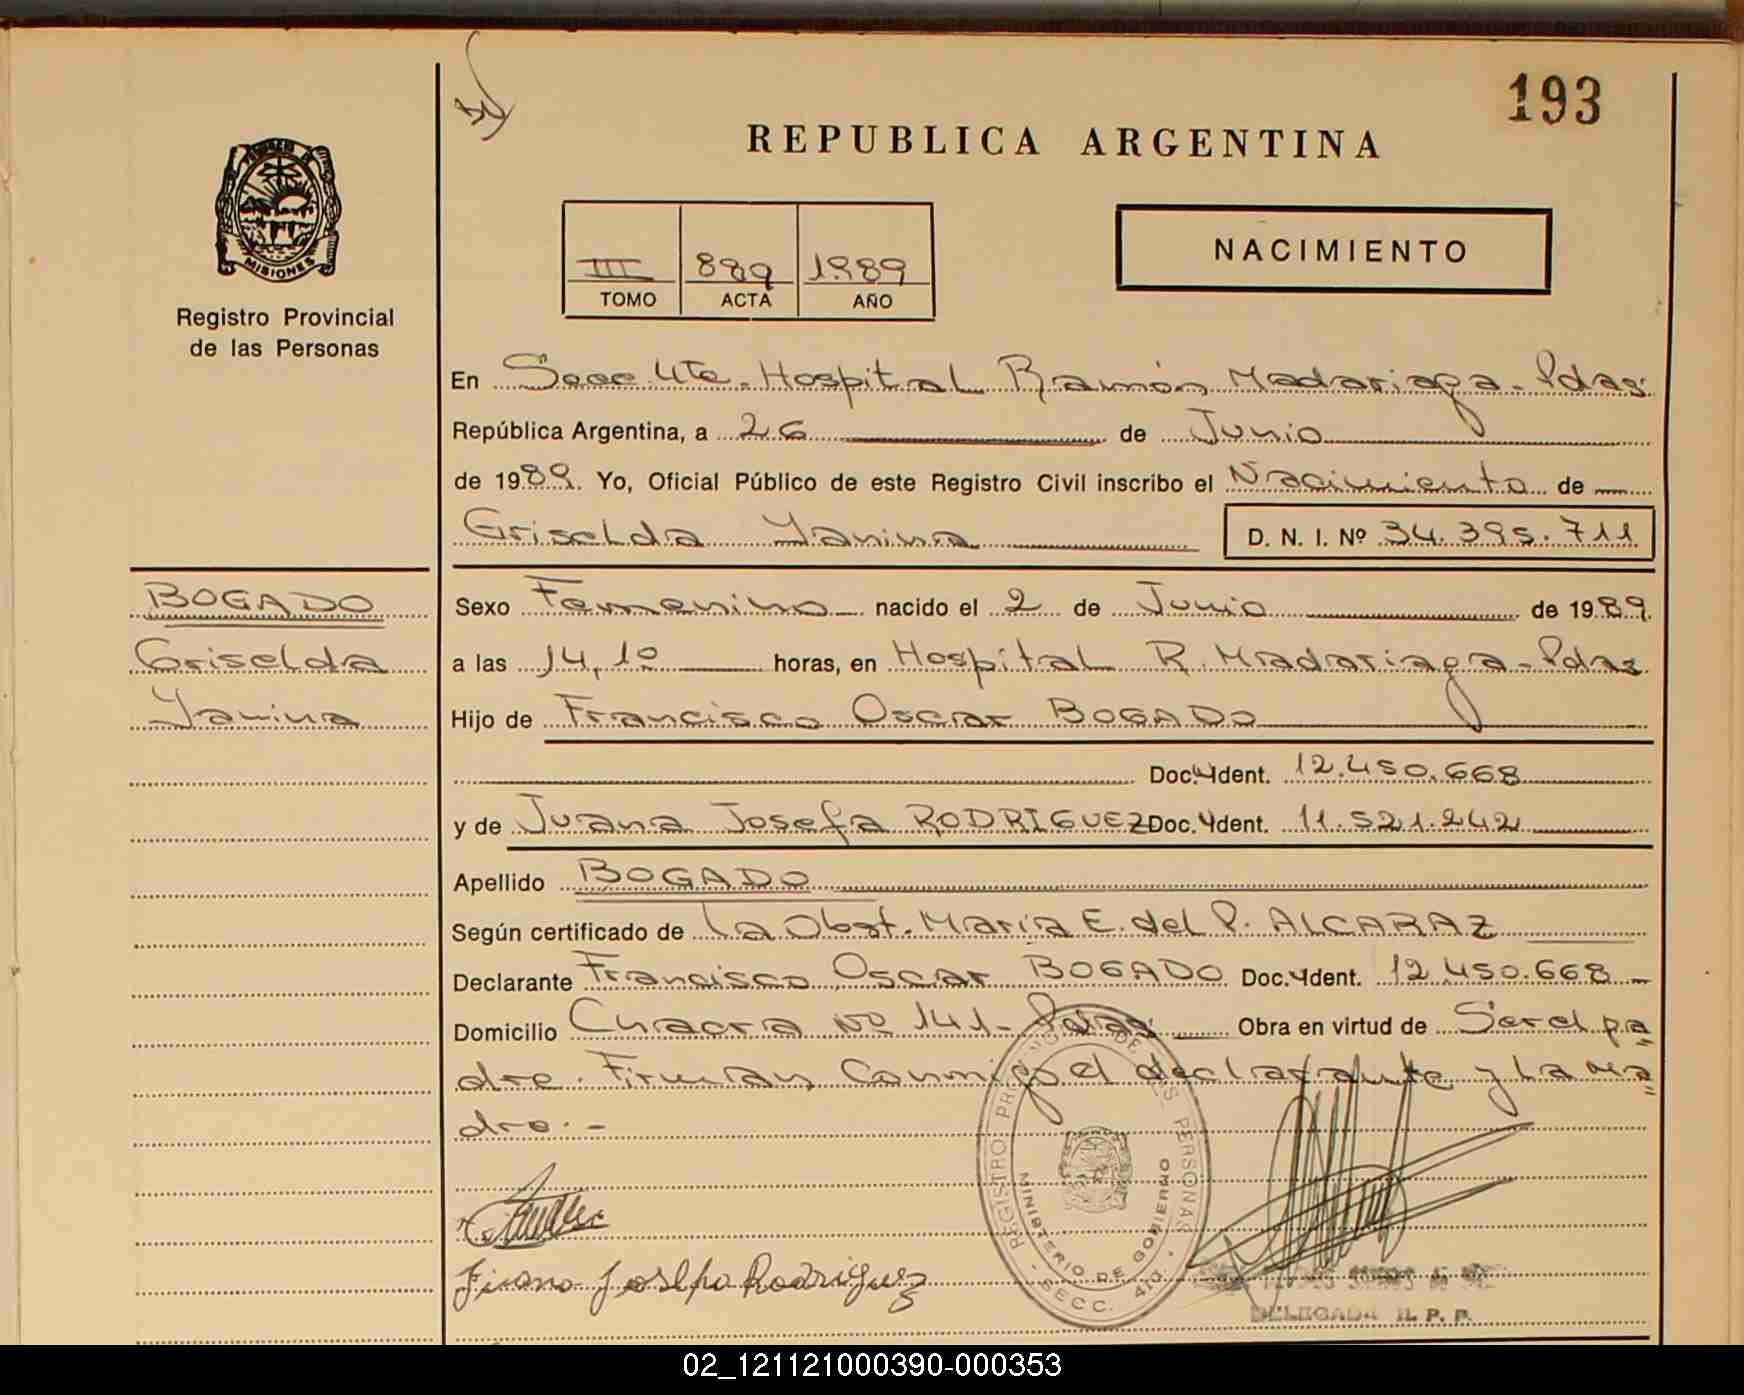 193
REPUBLICA ARGENTINA
MISIONES
Registro Provincial
de las Personas
NACIMIENTO
III 889 1989
TOMO ACTA AÑO
En Secc. 4ta. Hospital Ramón Madariaga - Pdas.
República Argentina, a 26 de Junio
de 1989. Yo, Oficial Público de este Registro Civil inscribo el Nacimiento de
Griselda Yanina D. N. I. Nº 34.395.711
BOGADO
Griselda
Yanina
Sexo Femenino nacido el 2 de Junio de 1989.
a las 14,10 horas, en Hospital R. Madariaga - Pdas.
Hijo de Francisco Oscar BOGADO
Doc. Ident. 12.450.668
y de Juana Josefa RODRIGUEZ Doc. Ident. 11.521.242
Apellido BOGADO
Según certificado de la Obst. María E. del P. ALCARAZ
Declarante Francisco Oscar BOGADO Doc. Ident. 12.450.668 -
Domicilio Chacra Nº 141 - Pdas. Obra en virtud de Ser el pa=
dre. Firman Conmigo el declarante y La Ma=
dre. -
REGISTRO PROVINCIAL DE LAS PERSONAS
MINISTERIO DE GOBIERNO
- SECC. 4ta. -
Juana Josefa Rodriguez
DELEGADA R. P. P.
02_121121000390-000353